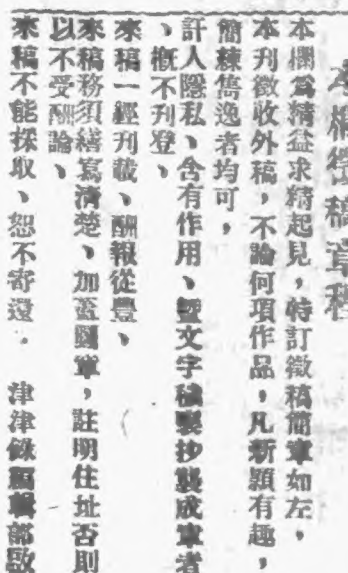 本欄徵稿章程
本欄爲精益求精起見，特訂徵稿簡章如左，
本刊徵收外稿，不論何項作品，凡新穎有趣，
簡練雋逸者均可，
訐人隱私、含有作用、暨文字穢褻抄襲成章者
、槪不刊登、
來稿一經刊載、酬報從豐、
來稿務須繕寫清楚、加蓋圖章，註明住址否則
以不受酬論、
來稿不能採取、恕不寄還． 津津錄編輯部啟